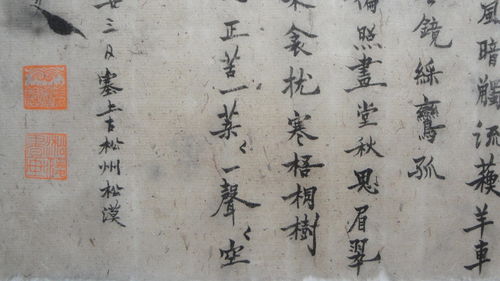 風暗觸流蘓羊車
鏡綵鸞孤
偏照畫堂秋思眉翠
衾枕寒梧桐樹
正苦一葉々一聲々空
三日塞上古松州松漠